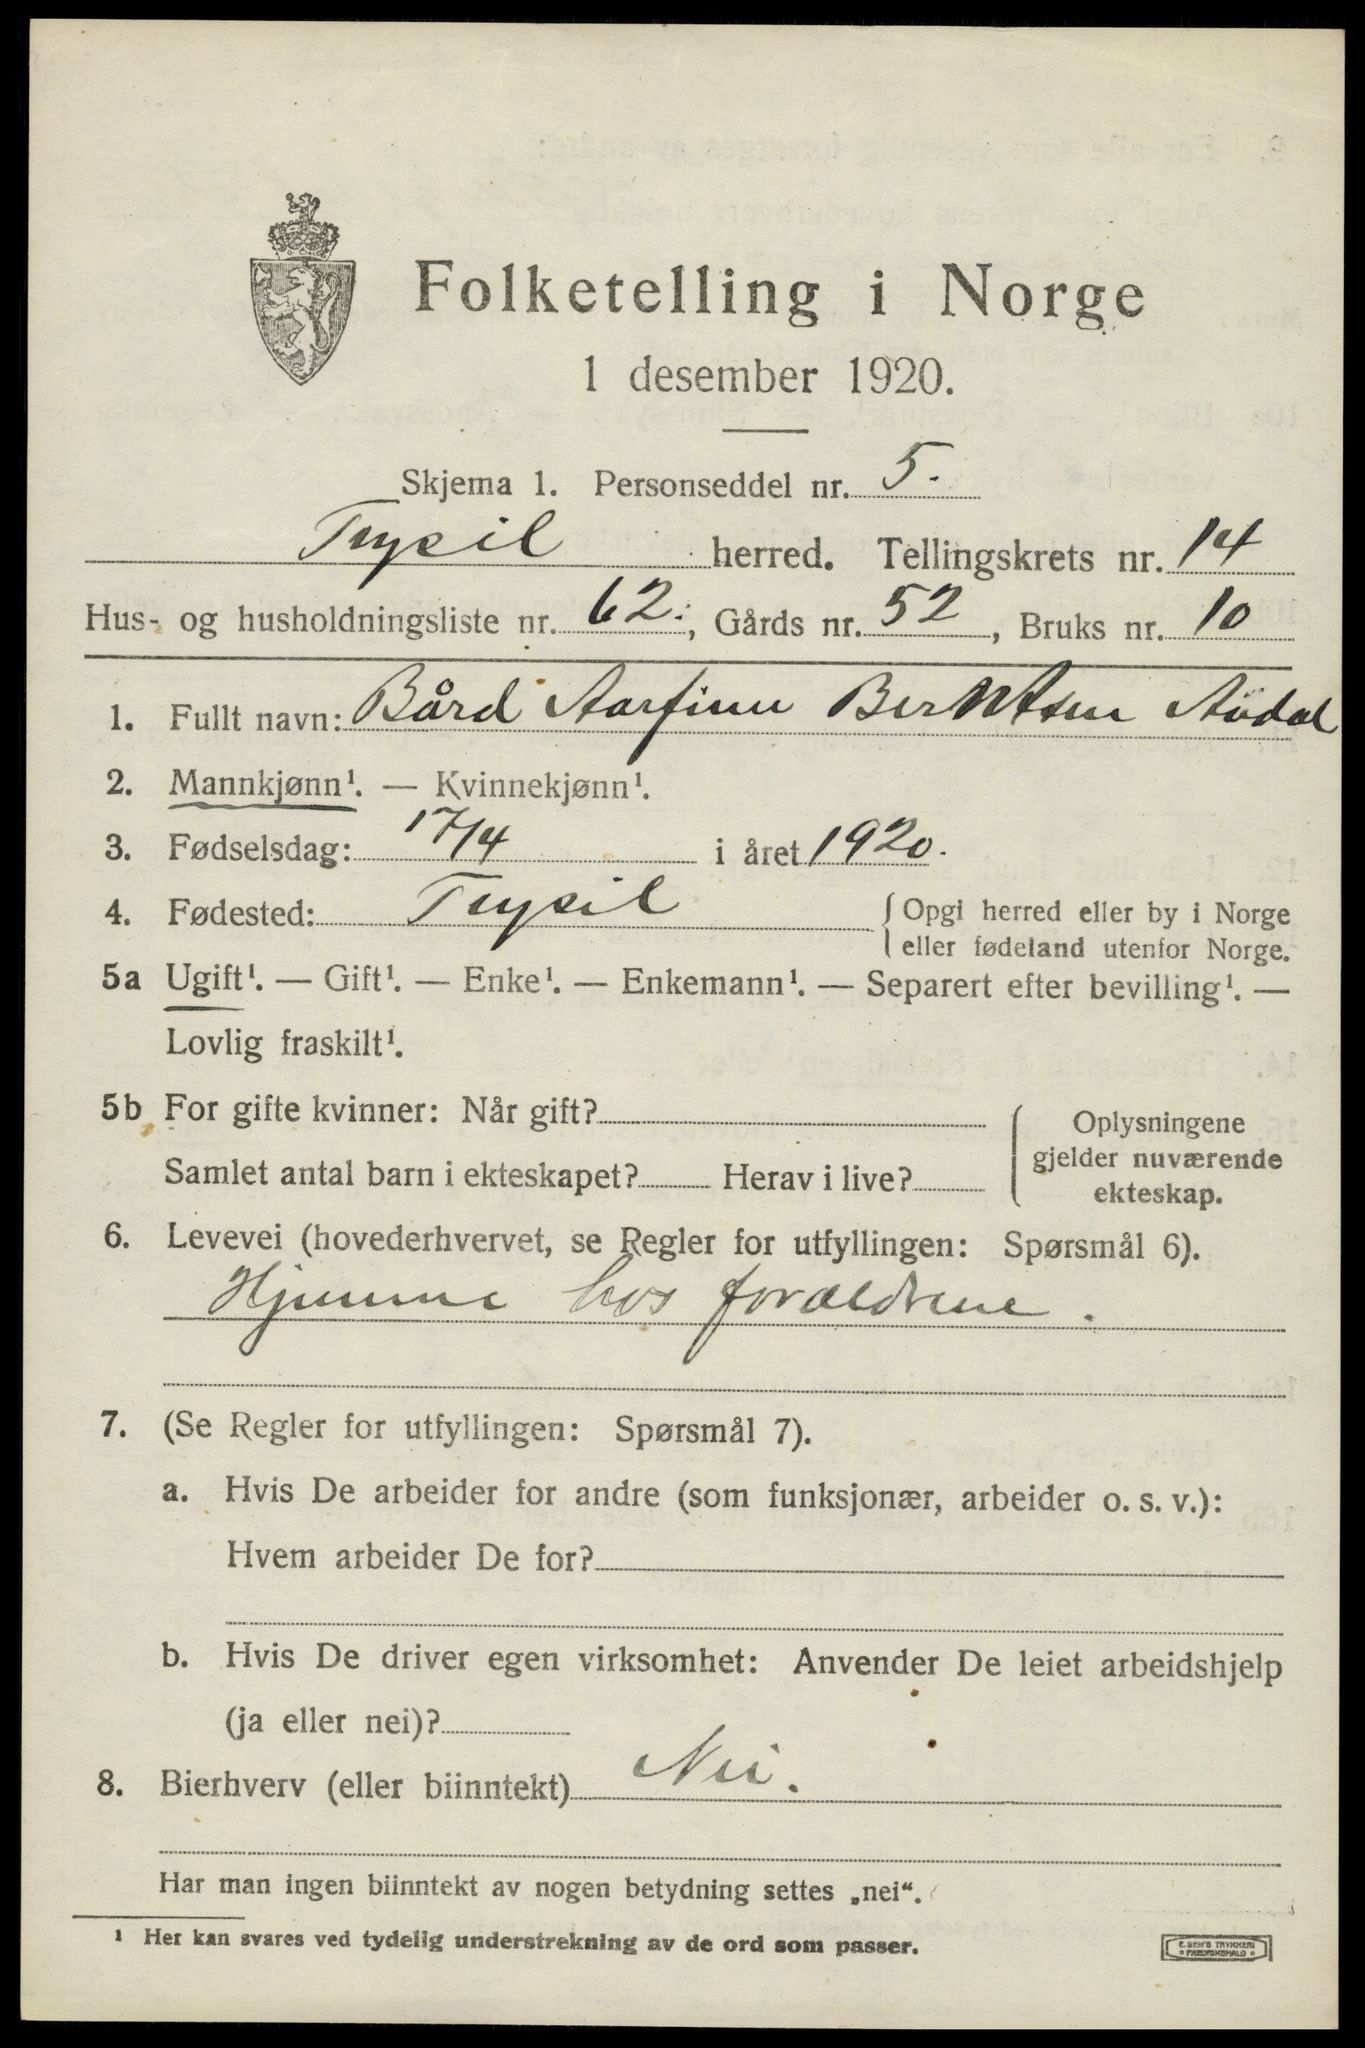 Folketelling i Norge
1 desember 1920.
Skjema 1. Personseddel nr. 5.
Trysil herred. Tellingskrets nr. 14
Hus- og husholdningsliste nr. 62., Gårds nr. 52, Bruks nr. 10
1. Fullt navn: Bård Aarfinn Berntsen
2. Mannkjønn¹. — Kvinnekjønn¹.
3. Fødselsdag: 17/4 i året 1920.
4. Fødested: Trysil { Opgi herred eller by i Norge
eller fødeland utenfor Norge.
5a Ugift¹. — Gift¹. — Enke¹. — Enkemann¹. — Separert efter bevilling¹. —
Lovlig fraskilt¹.
5b For gifte kvinner: Når gift?
Samlet antal barn i ekteskapet? Herav i live?
Oplysningene
gjelder nuværende
ekteskap.
6. Levevei (hovederhvervet, se Regler for utfyllingen: Spørsmål 6).
Hjemme hos forældrene.
7. (Se Regler for utfyllingen: Spørsmål 7).
a. Hvis De arbeider for andre (som funksjonær, arbeider o. s. v.):
Hvem arbeider De for?
b. Hvis De driver egen virksomhet: Anvender De leiet arbeidshjelp
(ja eller nei)?
8. Bierhverv (eller biinntekt) Nei.
Har man ingen biinntekt av nogen betydning settes „nei“.
¹ Her kan svares ved tydelig understrekning av de ord som passer.
E. SEM'S TRYKKERI
FREDRIKSHALD